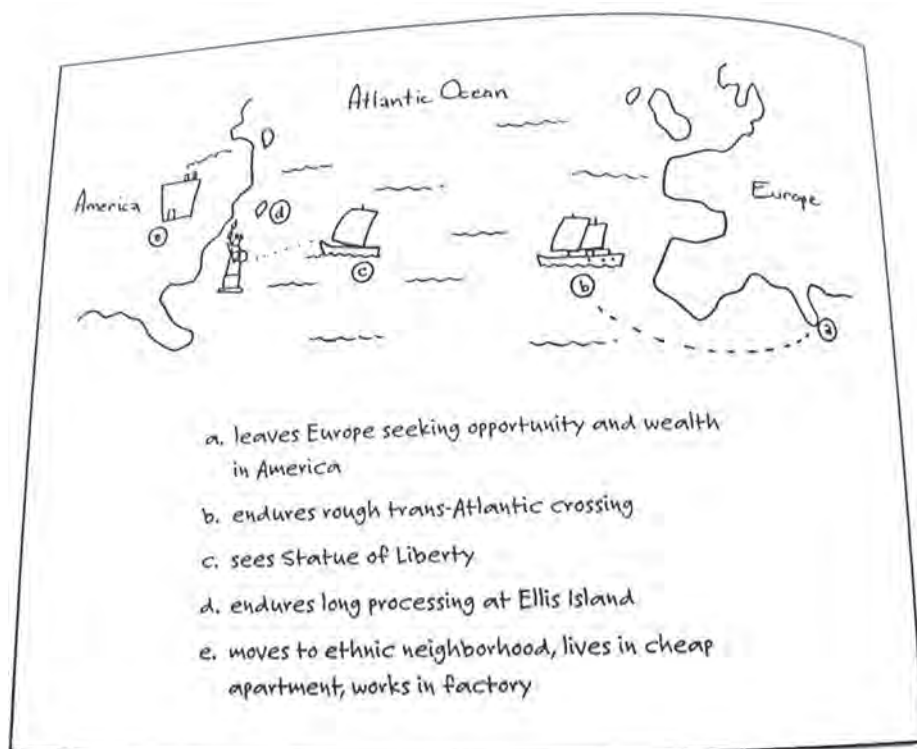 Atlantic Ocean
America
Europe
d
e
c
b
a
a. leaves Europe seeking opportunity and wealth
in America
b. endures rough trans-Atlantic crossing
c. sees Statue of Liberty
d. endures long processing at Ellis Island
e. moves to ethnic neighborhood, lives in cheap
apartment, works in factory